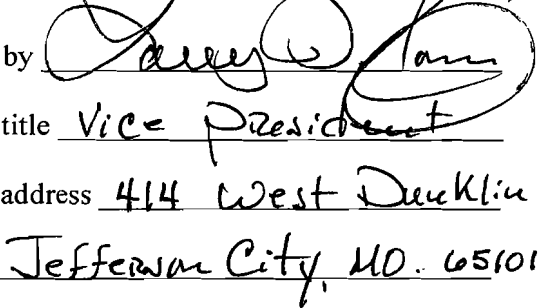 by Larry D.
title Vice President
address 414 West Dunklin
Jefferson City, MO. 65101